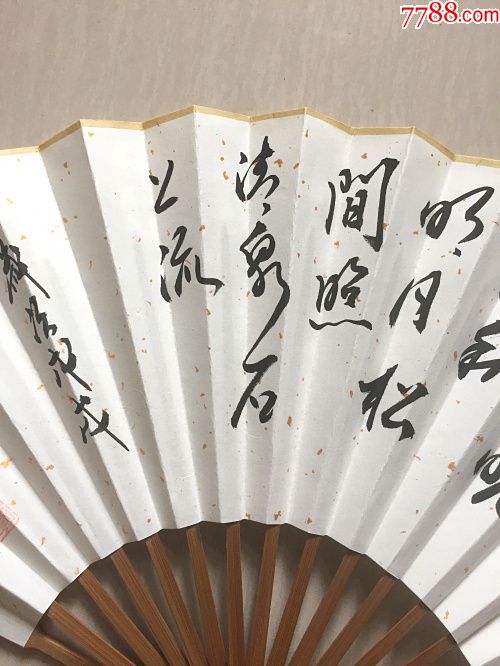 7788.com
明月松
間照
清泉石
上流